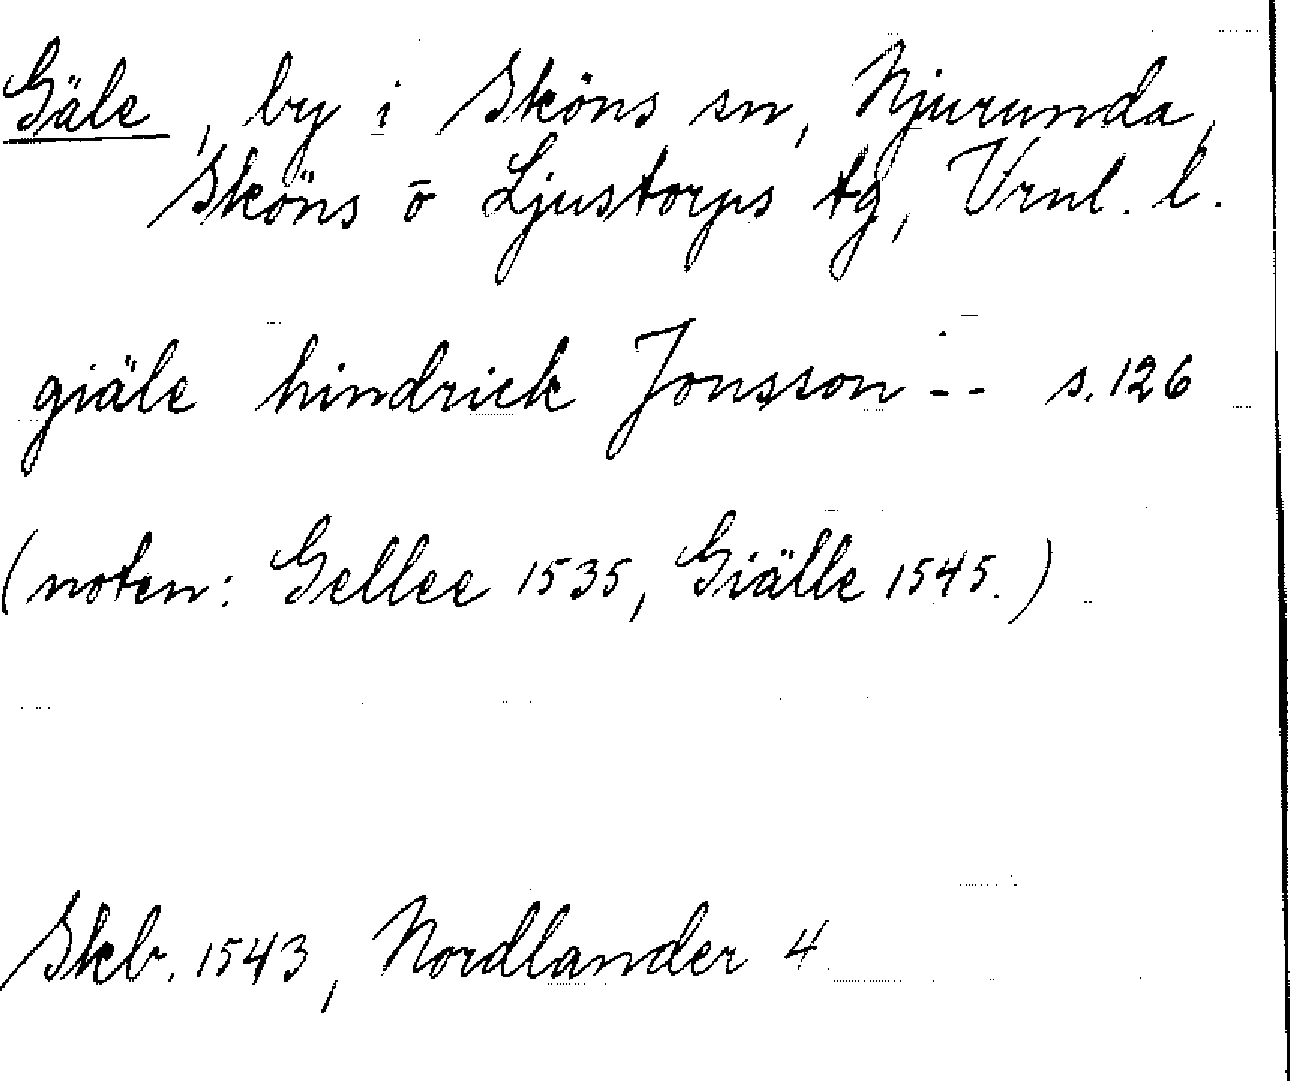 Gäle, by i Sköns sn, Njurunda,
Sköns o Ljustorps tg, Vrnl. l.
giäle hindrick Jonsson -- s. 126
(noten: Gellee 1535, Giälle 1545.)
Skb. 1543, Nordlander 4